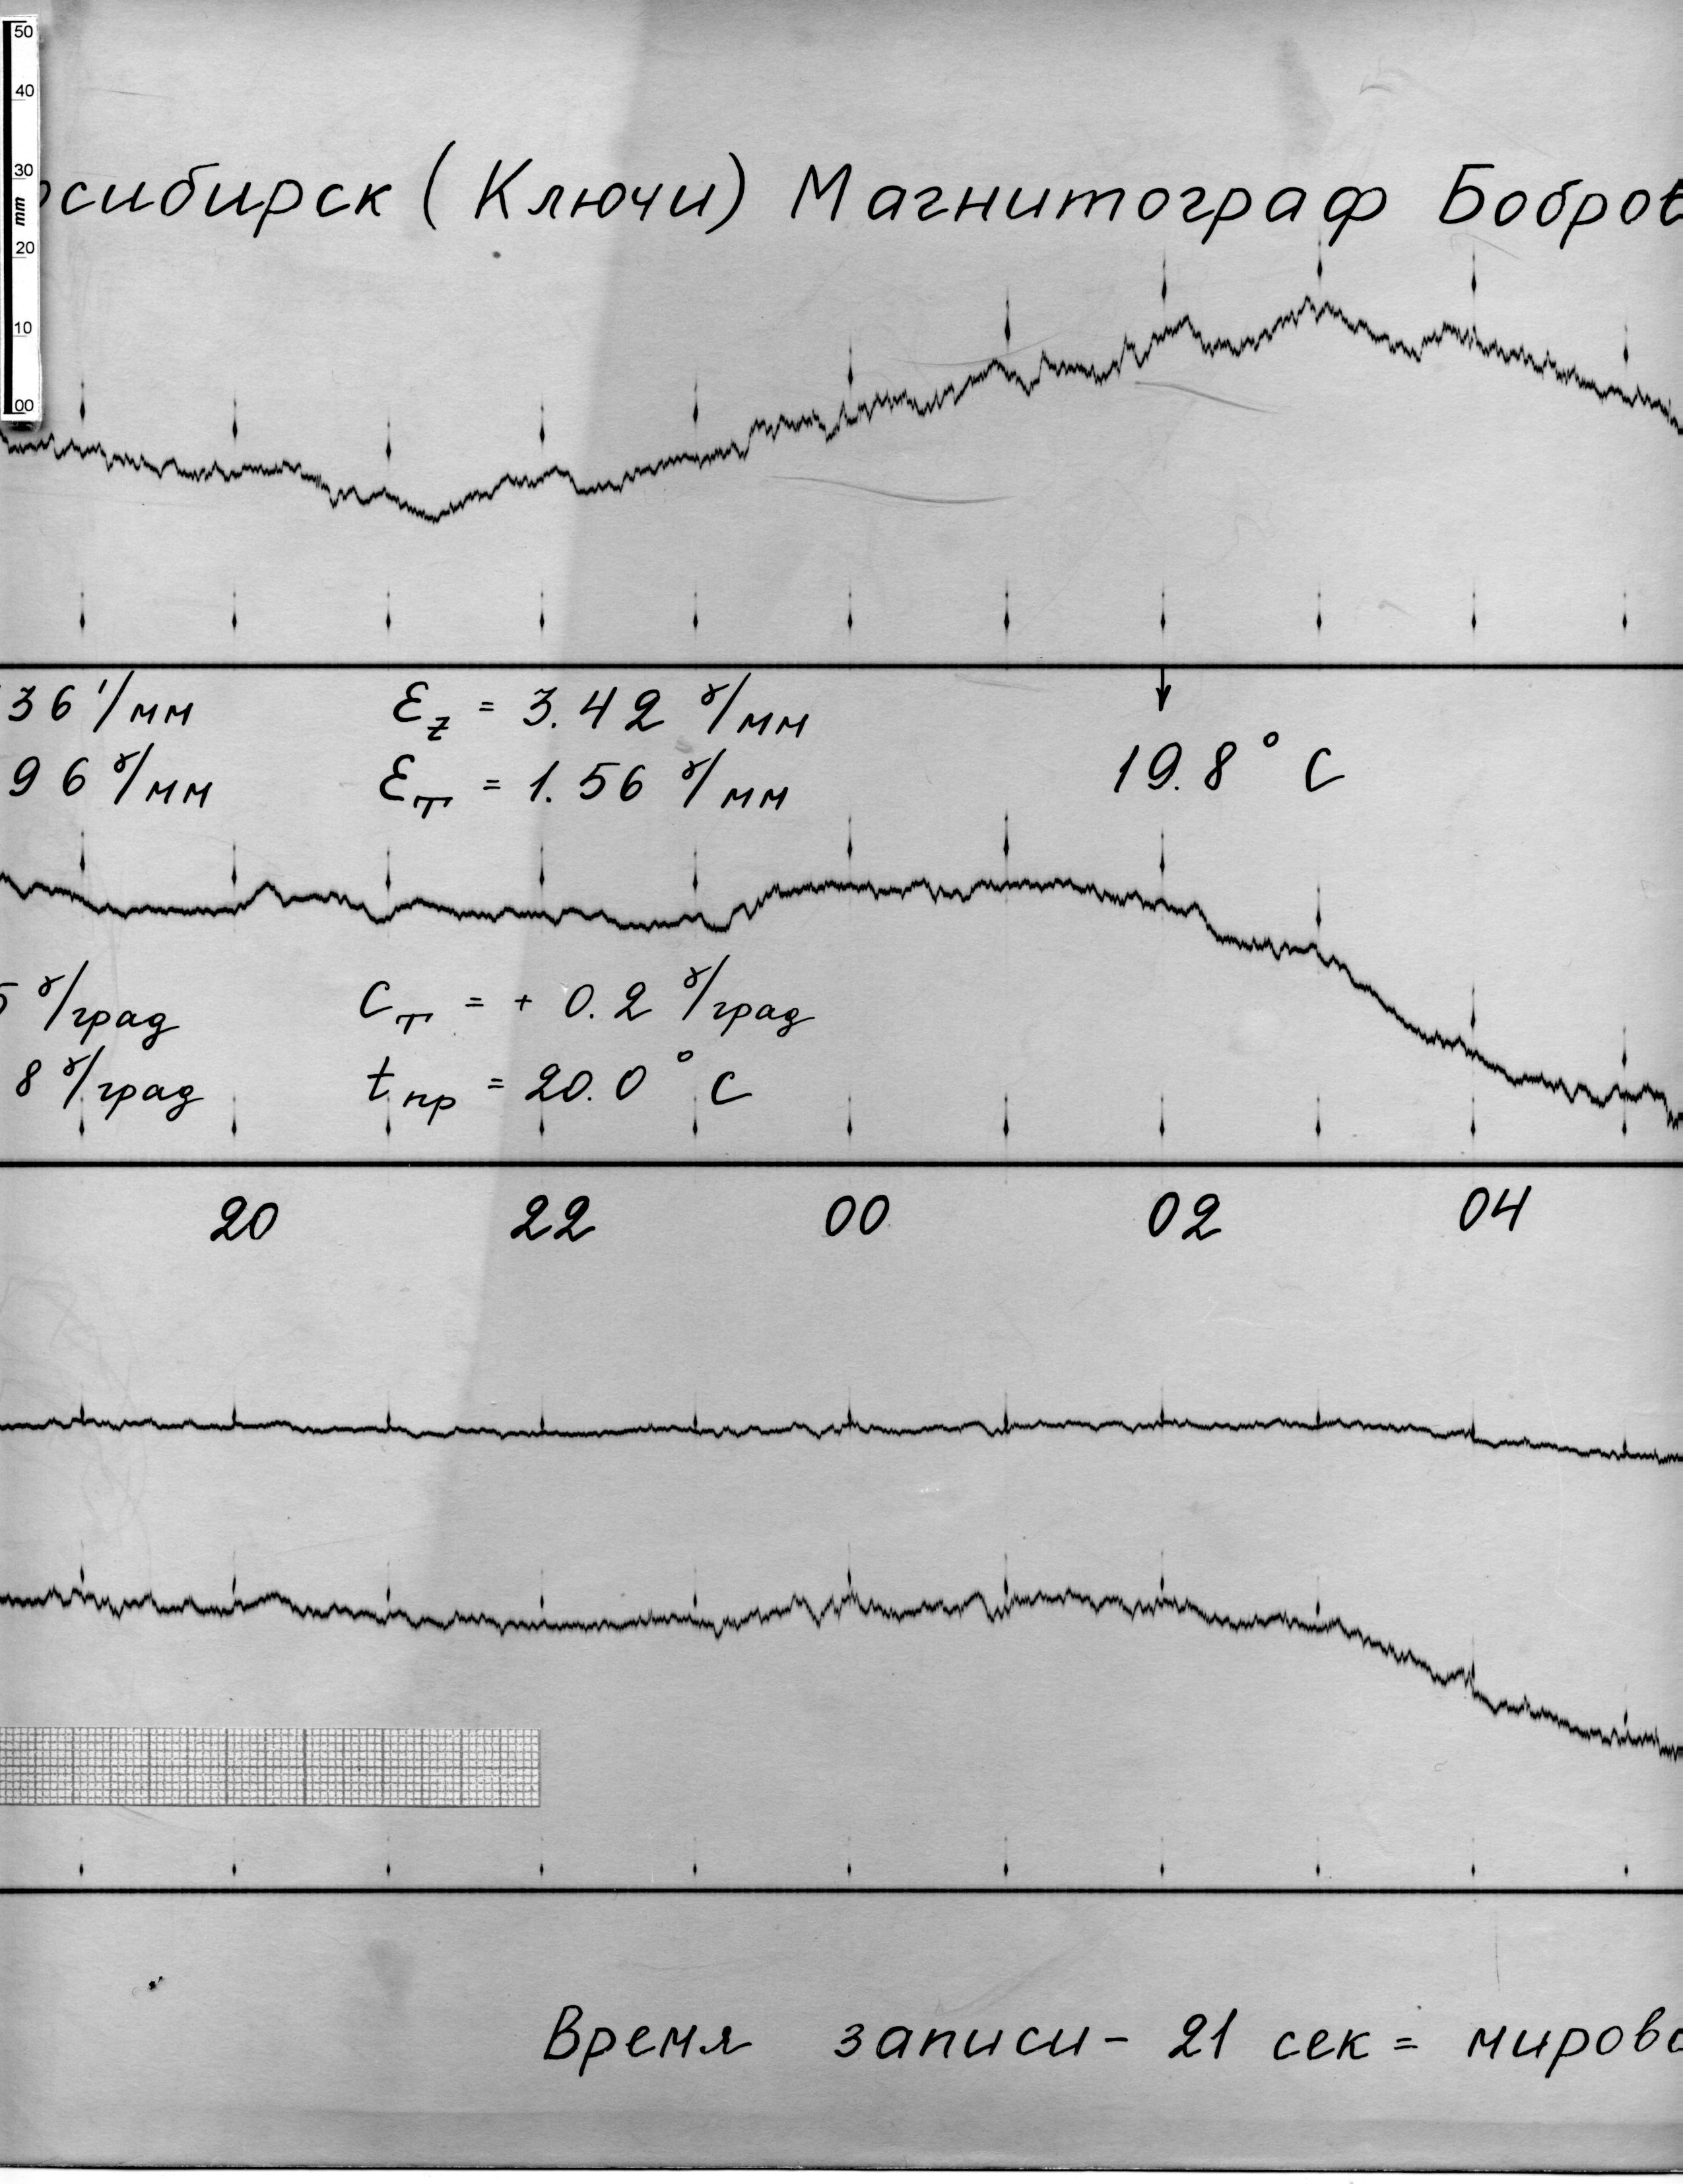 50
40
30
mm
20
10
00
осибирск (Ключи) Магнитограф Бобров
36'/мм Ɛz = 3.42 γ/мм
96 γ/мм Ɛт = 1.56 γ/мм
19.8° C
5 γ/град Cт = + 0.2 γ/град
8 γ/град tпр = 20.0° C
20 22 00 02 04
Время записи - 21 сек = миров